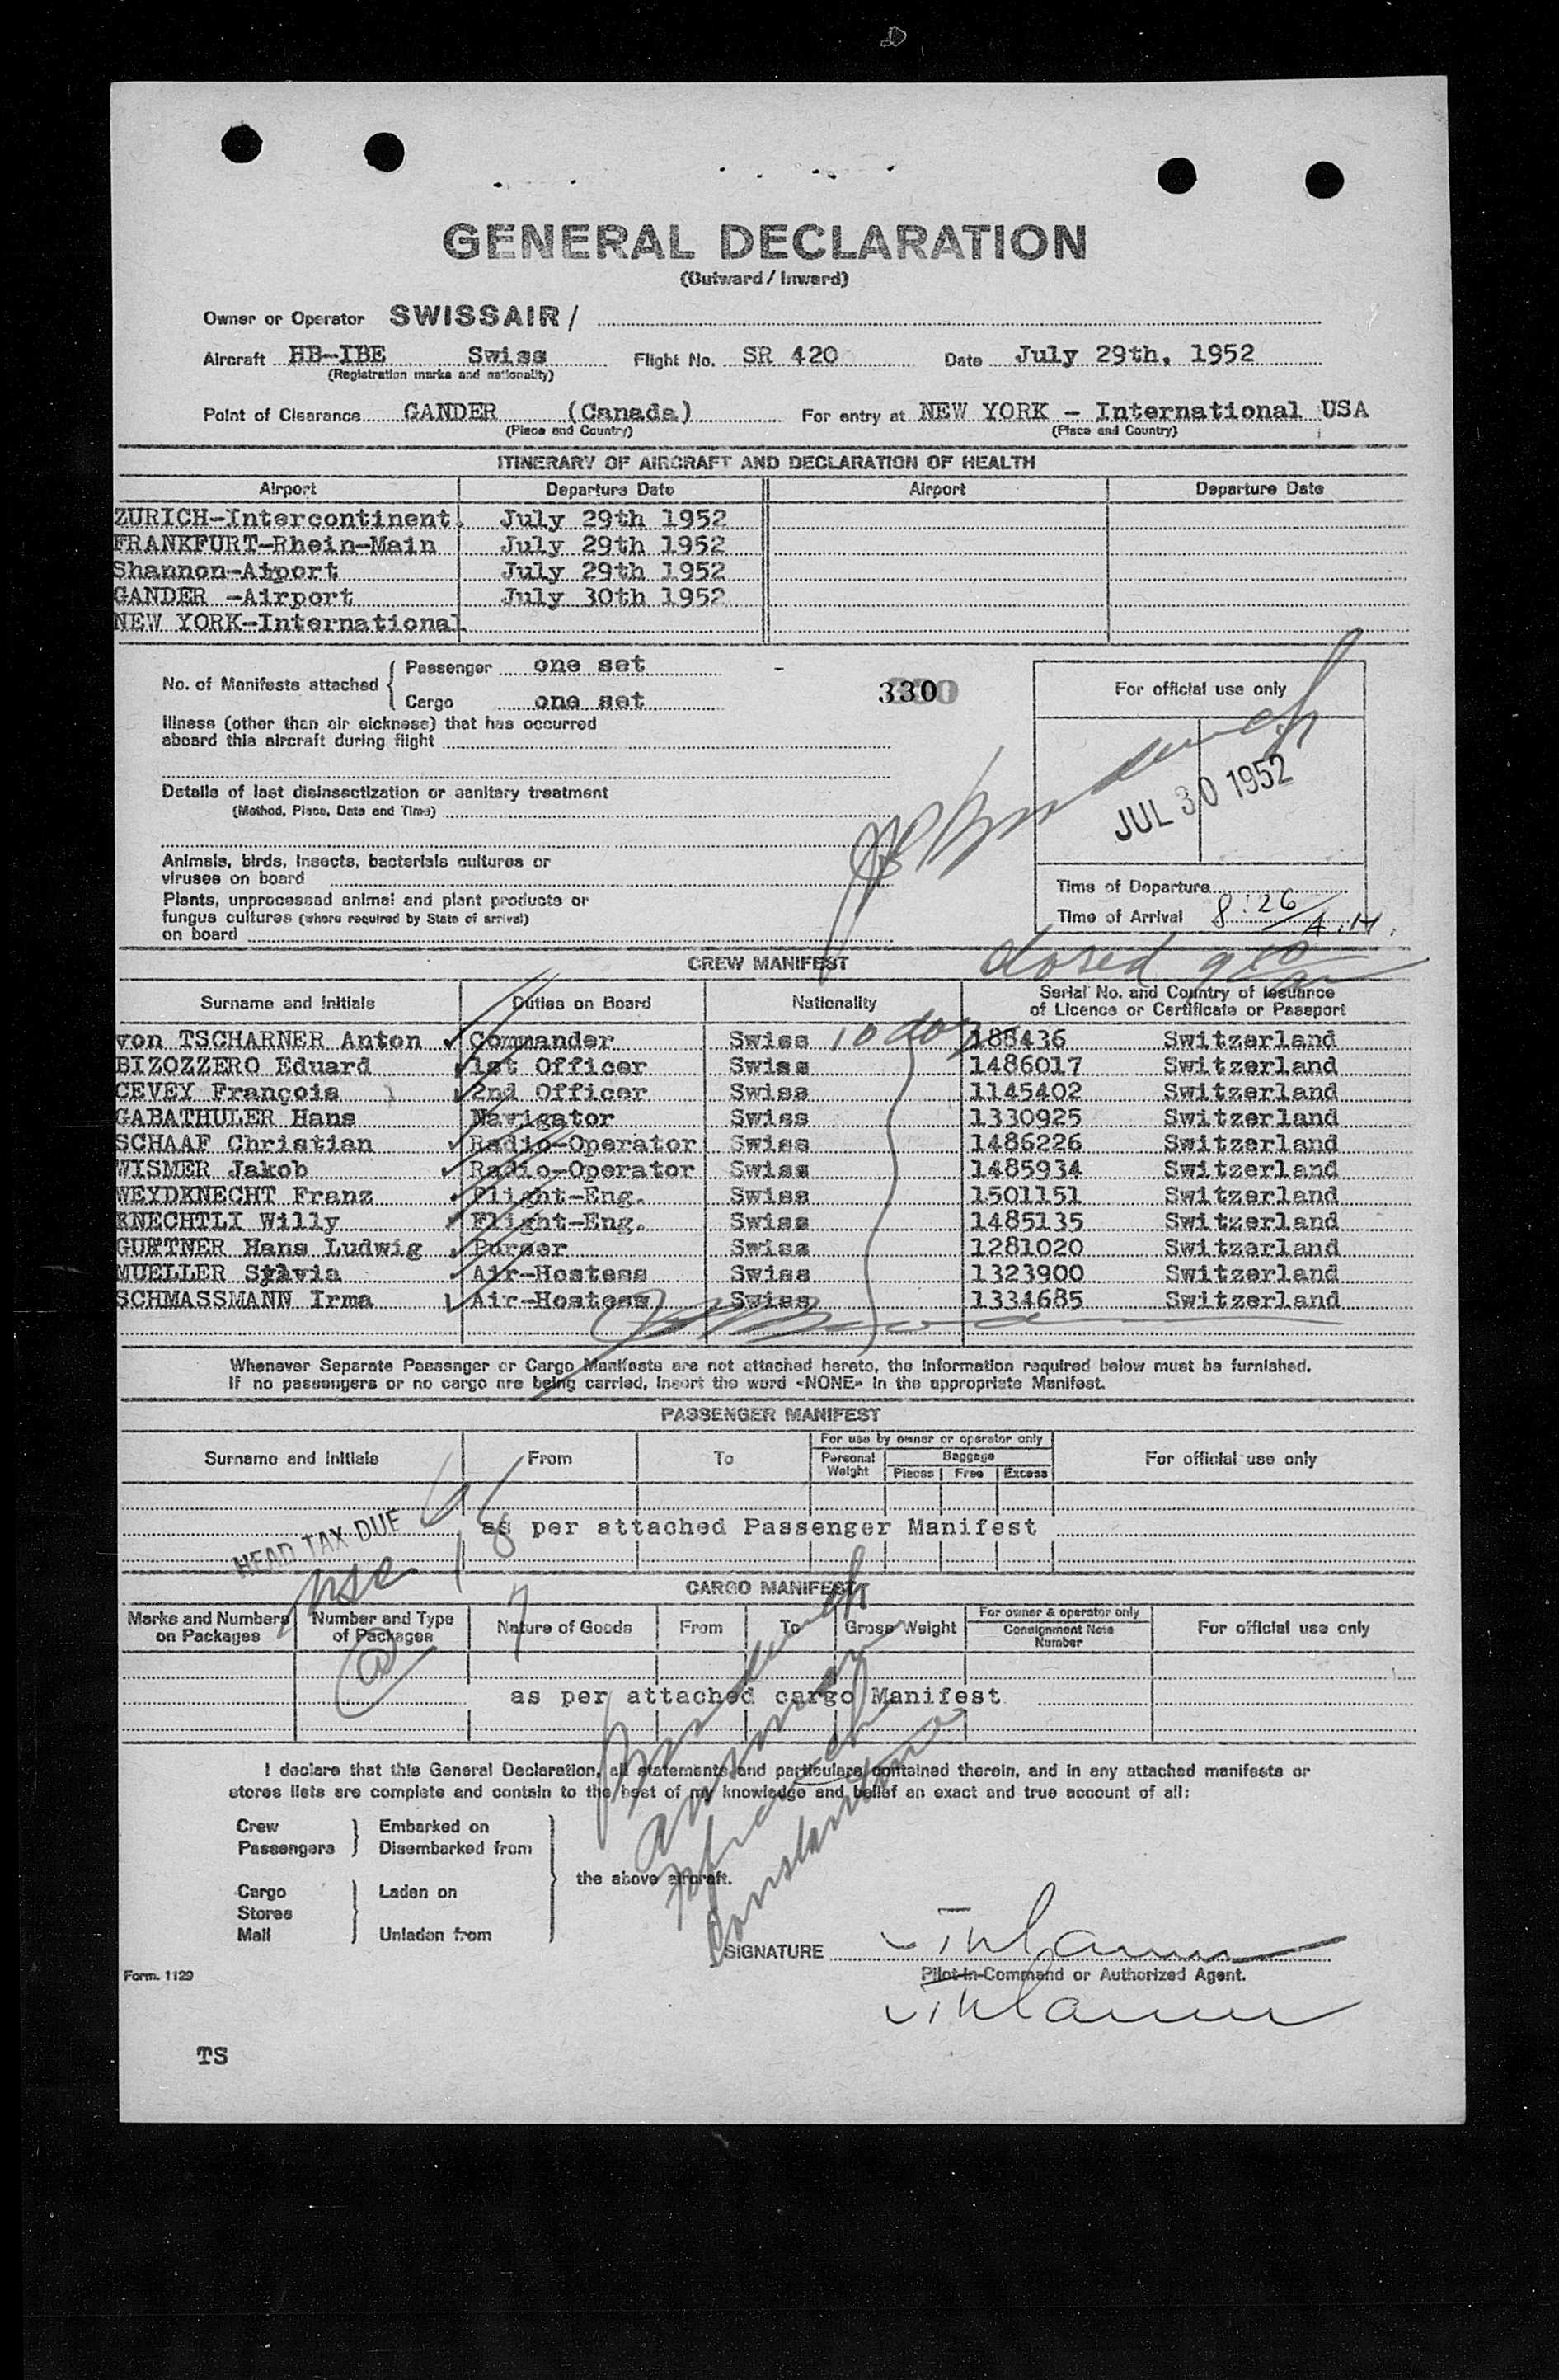 GENERAL DECLARATION
(Outward / Inward)
Owner or Operator SWISSAIR /
Aircraft HB-IBE Swiss Flight No. SR 420 Date July 29th, 1952
(Registration marks and nationality)
Point of Clearance GANDER (Canada) For entry at NEW YORK - International USA
(Place and Country) (Place and Country)
ITINERARY OF AIRCRAFT AND DECLARATION OF HEALTH
Airport Departure Date Airport Departure Date
ZURICH-Intercontinent. July 29th 1952
FRANKFURT-Rhein-Main July 29th 1952
Shannon-Aiport July 29th 1952
GANDER -Airport July 30th 1952
NEW YORK-International
No. of Manifests attached { Passenger one set
Cargo one set
330
For official use only
Illness (other than air sickness) that has occurred
aboard this aircraft during flight
JUL 30 1952
Details of last disinsectization or sanitary treatment
(Method, Place, Date and Time)
Animals, birds, insects, bacterials cultures or
viruses on board
Plants, unprocessed animal and plant products or
fungus cultures (where required by State of arrival)
on board
Time of Departure
Time of Arrival 8:26 A.M.
closed
CREW MANIFEST
Surname and Initials Duties on Board Nationality Serial No. and Country of Issuance
of Licence or Certificate or Passport
von TSCHARNER Anton Commander Swiss 10 188436 Switzerland
BIZOZZERO Eduard 1st Officer Swiss 1486017 Switzerland
CEVEY François 2nd Officer Swiss 1145402 Switzerland
GABATHULER Hans Navigator Swiss 1330925 Switzerland
SCHAAF Christian Radio-Operator Swiss 1486226 Switzerland
WISMER Jakob Radio-Operator Swiss 1485934 Switzerland
WEYDKNECHT Franz Flight-Eng. Swiss 1501151 Switzerland
KNECHTLI Willy Flight-Eng. Swiss 1485135 Switzerland
GURTNER Hans Ludwig Purser Swiss 1281020 Switzerland
MUELLER Sylvia Air-Hostess Swiss 1323900 Switzerland
SCHMASSMANN Irma Air-Hostess Swiss 1334685 Switzerland
Whenever Separate Passenger or Cargo Manifests are not attached hereto, the information required below must be furnished.
If no passengers or no cargo are being carried, insert the word «NONE» in the appropriate Manifest.
PASSENGER MANIFEST
Surname and Initials From To For use by owner or operator only For official use only
Personal Weight Baggage
Pieces Free Excess
as per attached Passenger Manifest
HEAD TAX DUE
CARGO MANIFEST
Marks and Numbers on Packages Number and Type of Packages Nature of Goods From To Gross Weight For owner & operator only For official use only
Consignment Note Number
as per attached cargo Manifest
I declare that this General Declaration, all statements and particulars contained therein, and in any attached manifests or
stores lists are complete and contain to the best of my knowledge and belief an exact and true account of all:
Crew } Embarked on
Passengers } Disembarked from
the above aircraft.
Cargo } Laden on
Stores
Mail } Unladen from
SIGNATURE
Pilot-in-Command or Authorized Agent.
Form. 1129
TS